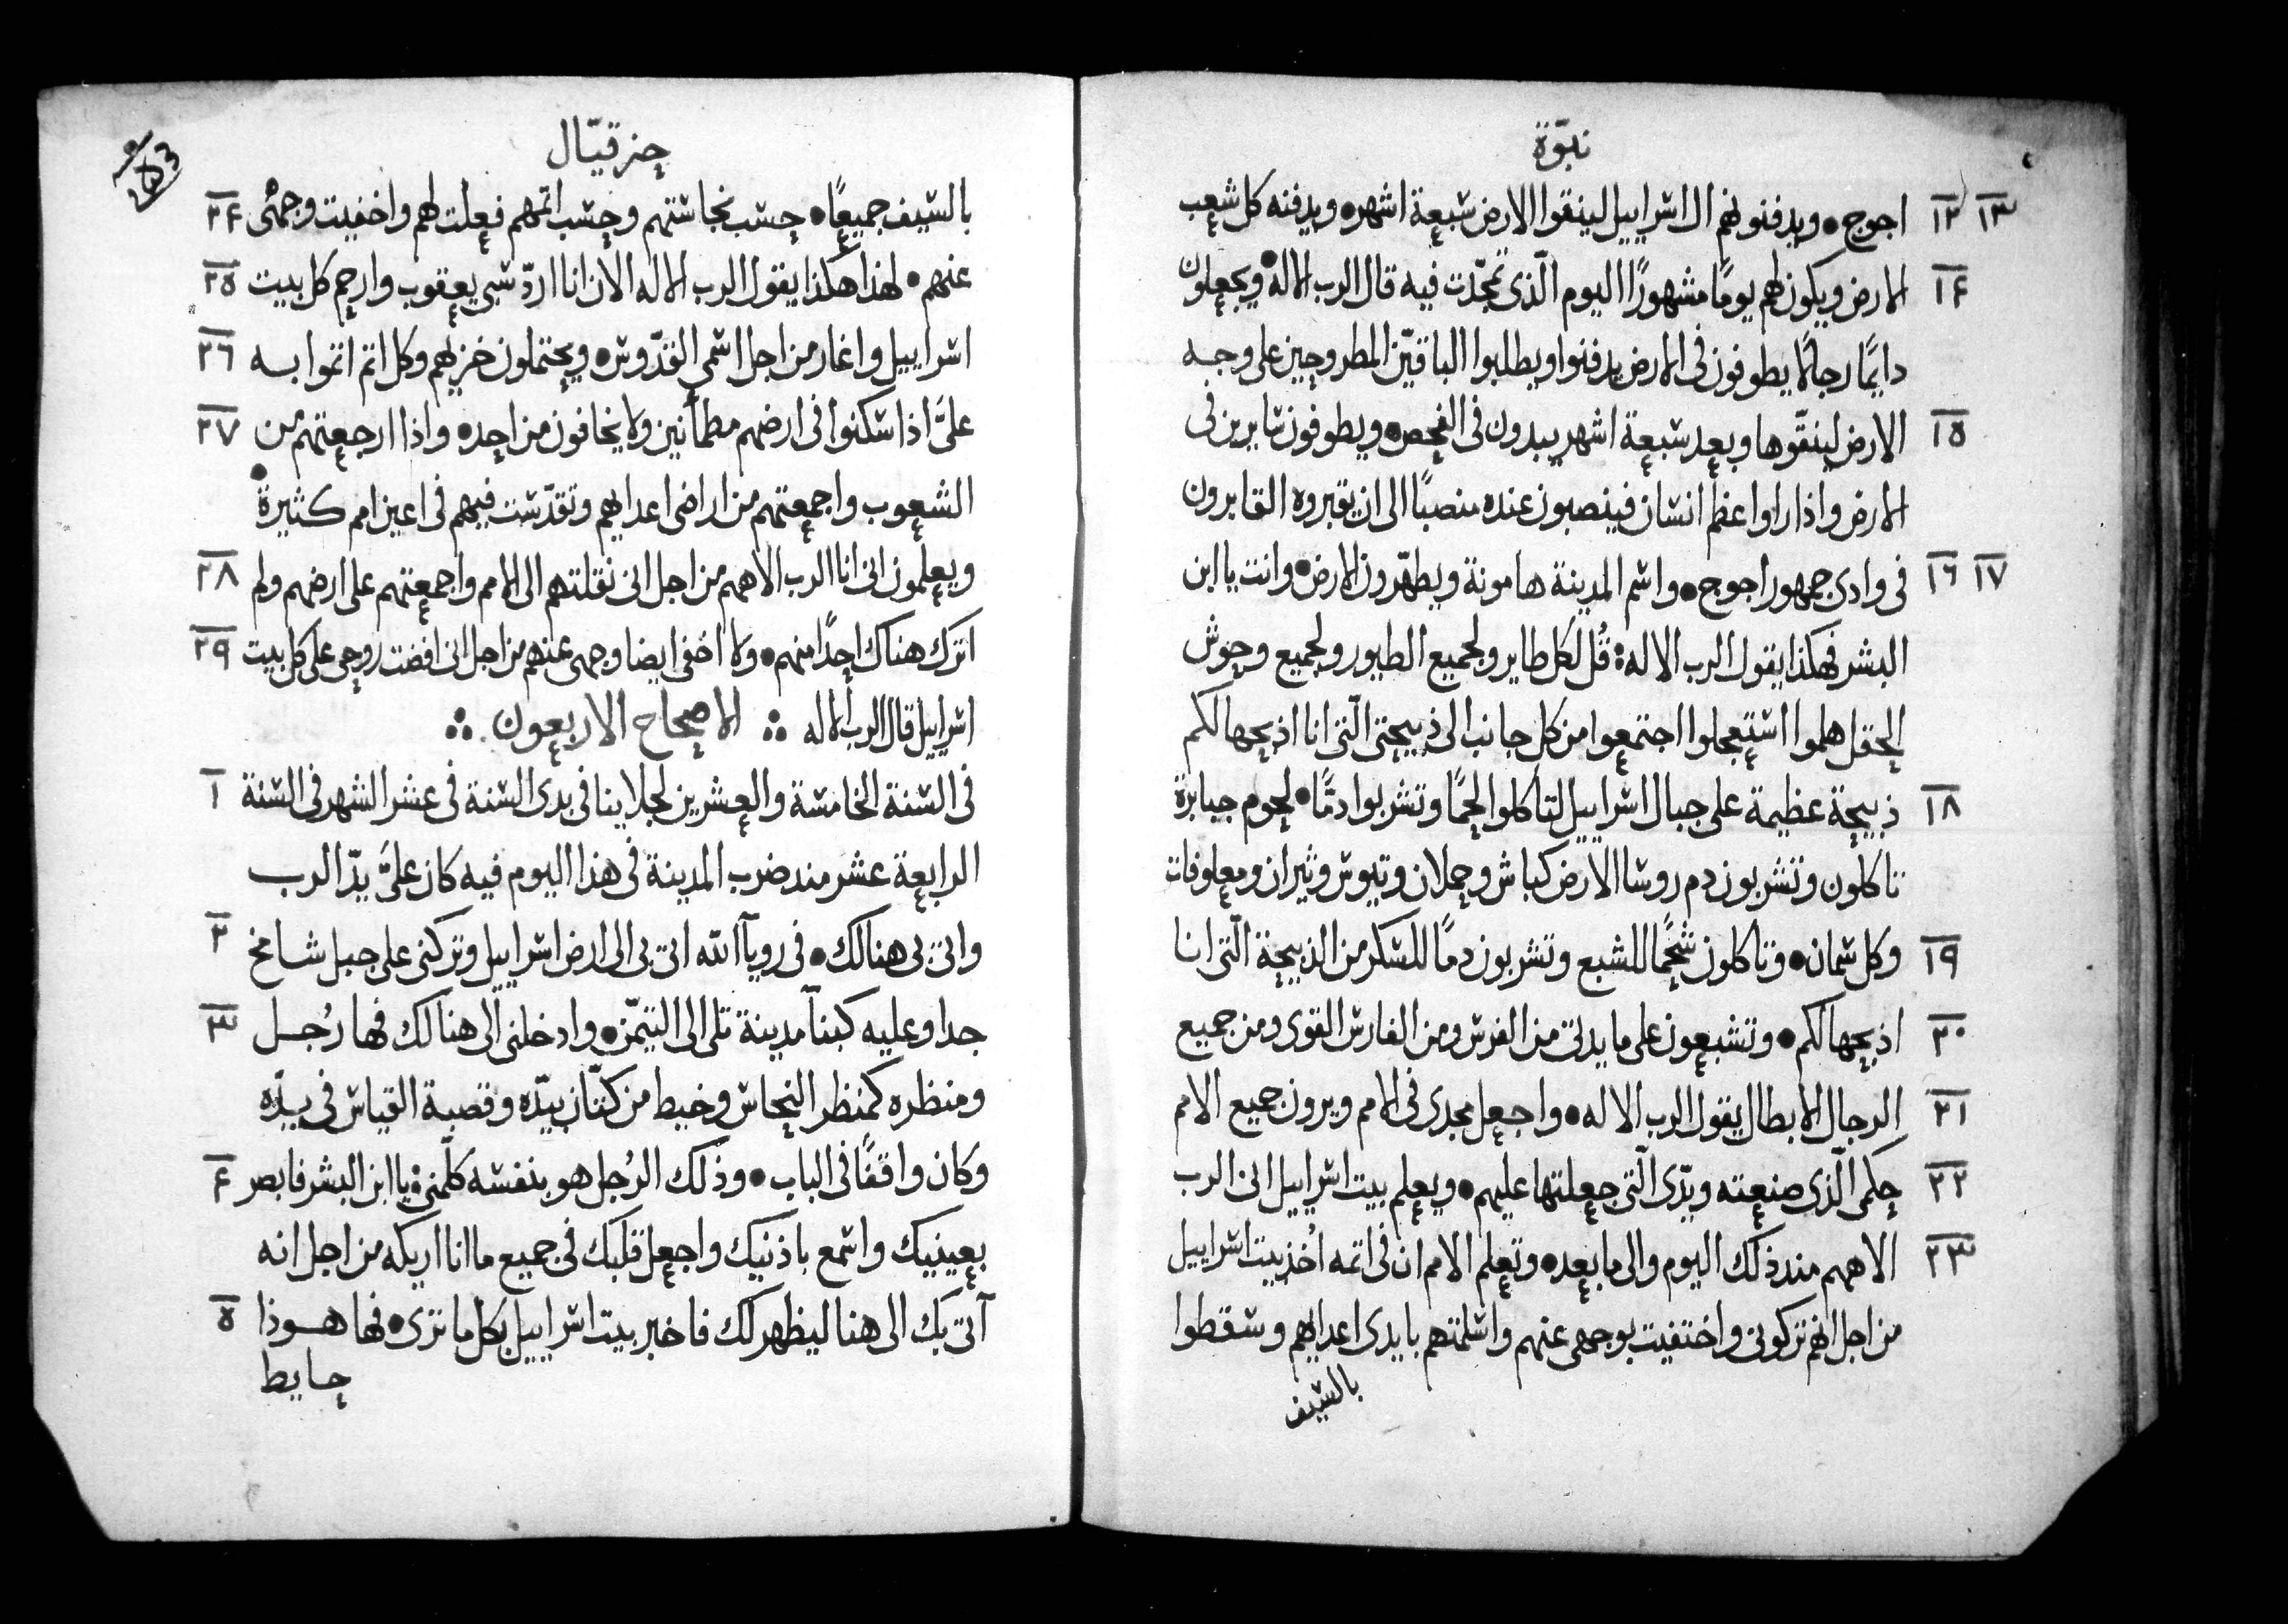 نبوّة
١٢ ١٣ اجوج • ويدفنونهم ال اسراييل لينقوا الارض سبعة اشهر • ويدفنه كل شعب
١٤ الارض ويكون لهم يومًا مشهورًا اليوم الّذي تمجّدت فيه قال الرب الاله • ويجعلون
دايمًا رجالًا يطوفون في الارض يدفنوا ويطلبوا الباقيّن المطروحين على وجه
١٥ الارض لينقّوها وبعد سبعة اشهر يبدون في الفحص • ويطوفون سايرين في
الارض واذا راوا عظم انسان فينصبون عنده منصبًا الى ان يقبروه القابرون
١٦ ١٧ في وادي جمهور اجوج • واسم المدينة هامونة ويطهّرون الارض • وانت يا ابن
البشر فهكذا يقول الرب الاله : قُل لكل طاير ولجميع الطيور ولجميع وحوش
الحقل هلموا استعجلوا اجتمعوا من كل جانب الى ذبيحتي الّتي انا اذبحها لكم
١٨ ذبيحة عظيمة على جبال اسراييل لتاكلوا لحمًا وتشربوا دمًّا • لحوم جبابرة
تاكلون وتشربون دم روسا الارض كباش وحملان وتيوس وثيران ومعلوفات
١٩ وكل سمان • وتاكلون شحمًا للشبع وتشربون دمًا للسكر من الذبيحة الّتي انا
٢٠ اذبحها لكم • وتشبعون على مايدتي من الفرس ومن الفارس القوي ومن جميع
٢١ الرجال الابطال يقول الرب الاله • واجعل مجدي في الامم ويرون جميع الامم
٢٢ حكمي الّذي صنعته ويدّي الّتي جعلتها عليهم • ويعلم بيت اسراييل اني الرب
٢٣ الاههم مند ذلك اليوم والى ما بعد • وتعلم الامم ان في اتمه اُخذ بيت اسراييل
من اجل انهم تركوني واختفيت بوجهي عنهم واسلمتهم بايدي اعدايهم وسقطوا
بالسيف
حزقيّال
بالسيف جميعًا • حسب نجاستهم وحسب اتمهم فعلت لهم واخفيت وجهي ٢٤
عنهم • لهذا هكذا يقول الرب الاله الان انا اردّ سبي يعقوب وارحم كل بيت ٢٥
اسراييل واغار من اجل اسمي القدّوس • ويحتملون خزيهم وكل اتم اتموا به ٢٦
عليَّ اذا سكنوا في ارضهم مطمأنين ولا يخافون من احد • واذا ارجعتهم من ٢٧
الشعوب واجمعتهم من اراضي اعدايهم وتقدّست فيهم في اعين امم كثيرة •
ويعلمون اني انا الرب الاههم من اجل اني نقلتهم الى الامم واجمعتهم على ارضهم ولم ٢٨
اترك هناك احدًا منهم • ولا اخفي ايضا وجهي عنهم من اجل اني افضت روحي على كل بيت ٢٩
اسراييل قال الرب الاله ∴ الاصحاح الاربعون ∴
في السنة الخامسة والعشرين لجلاينا في بدي السنة في عشر الشهر في السنة ١
الرابعة عشر مند ضرب المدينة في هذا اليوم فيه كان عليَّ يدّ الرب
واتي بي هنالك • في رويآ الله اتي بي الى ارض اسراييل وتركني على جبل شامخ ٢
جدا وعليه كبنآ مدينة تلي الى التيمّن • وادخلني الى هنالك فها رُجل ٣
ومنظره كمنظر النحاس وخيط من كتّان بيدّه وقصبة القياس في يدّه
وكان واقفًا في الباب • وذلك الرُجل هو بنفسه كلّمني : يا ابن البشر فابصر ٤
بعينيك واسمع باذنيك واجعل قلبك في جميع ما انا اريكه من اجل انه
آتي بك الى هنا ليظهر لك فاخبر بيت اسراييل بكل ما ترى • فها هوذا ٥
حايط